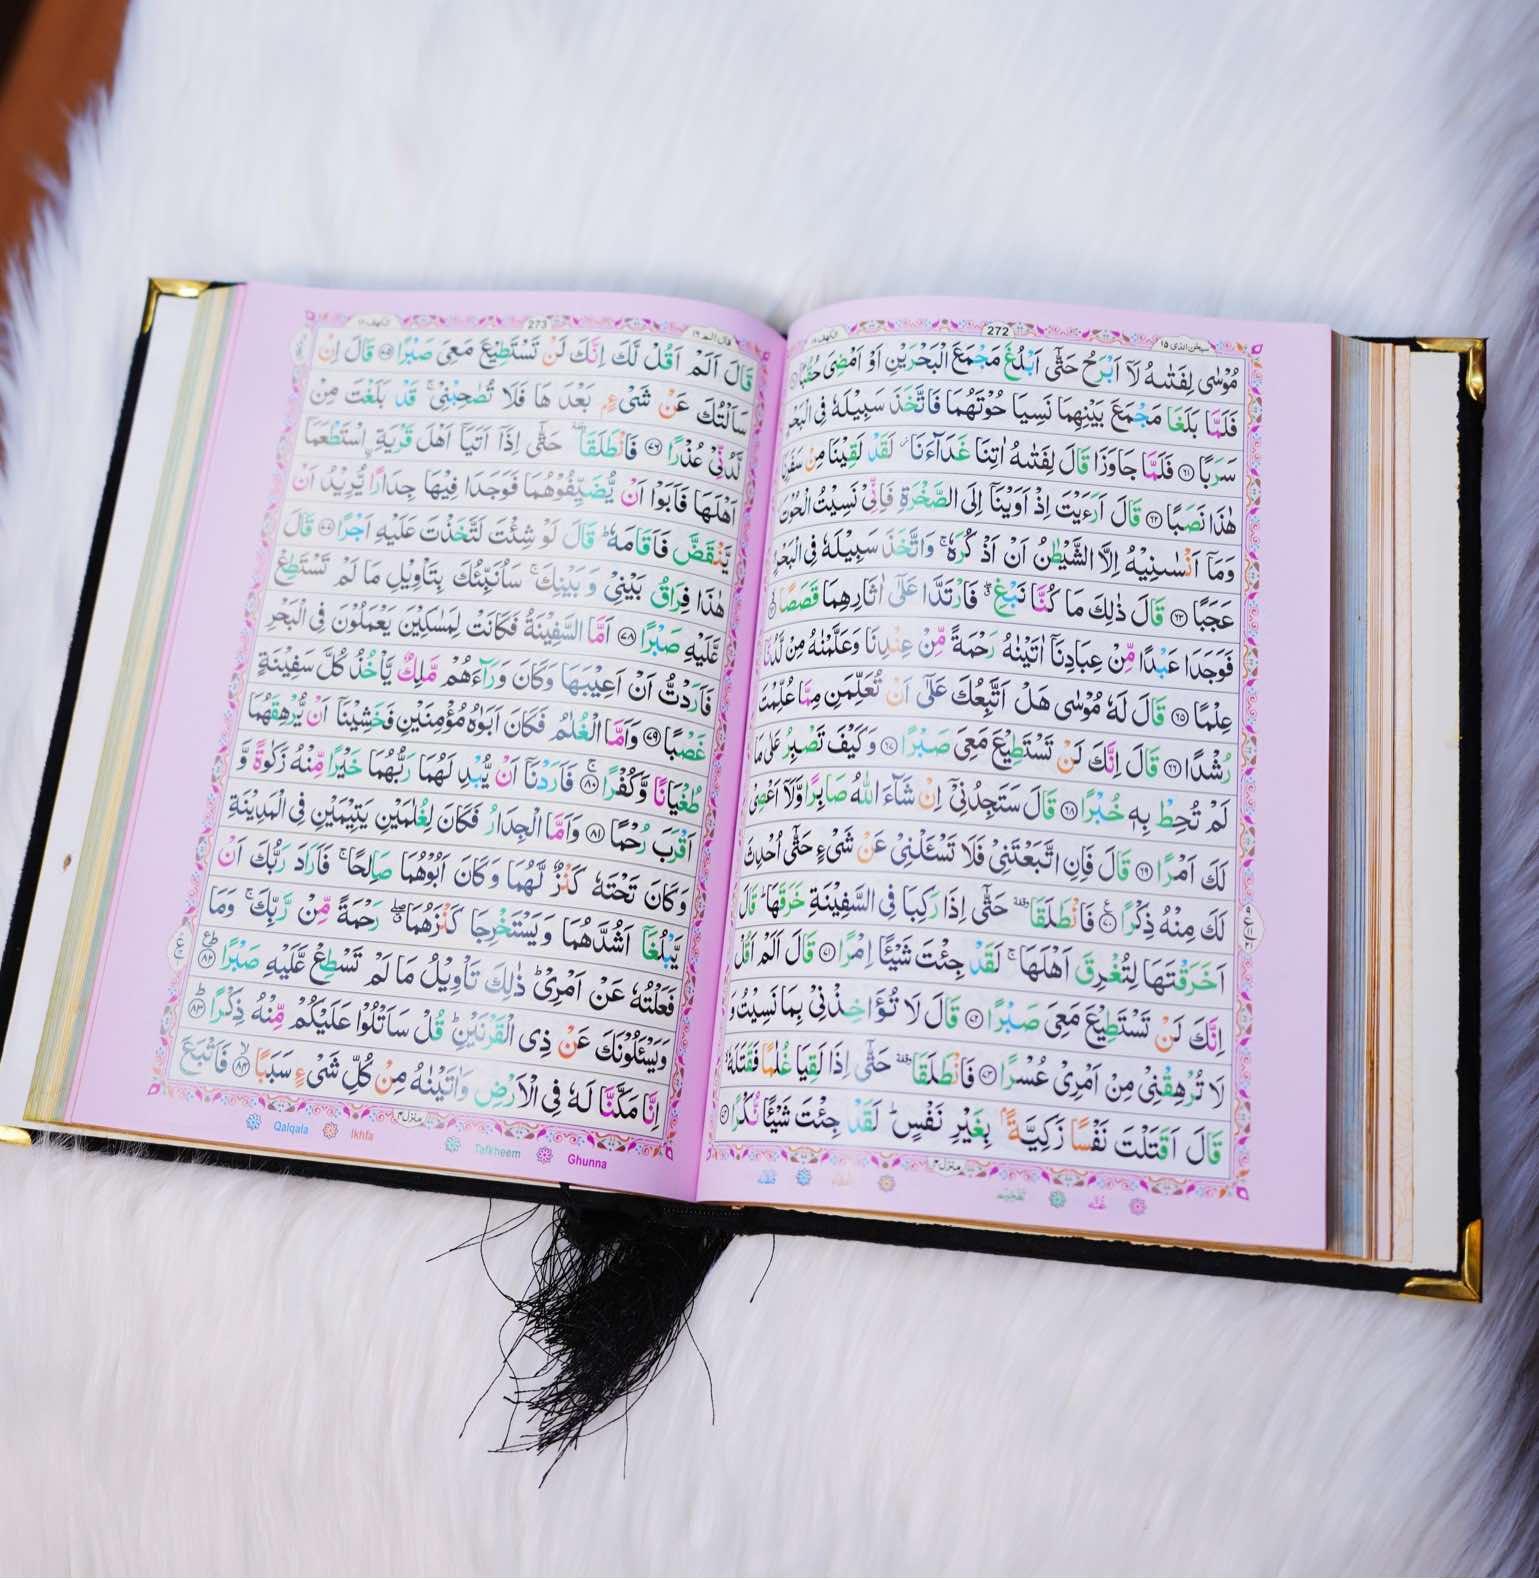 272
سبحٰن الذی ١٥
الکهف ١٨
مُوْسٰى لِفَتٰىهُ لَاۤ اَبْرَحُ حَتّٰۤى اَبْلُغَ مَجْمَعَ الْبَحْرَيْنِ اَوْ اَمْضِىَ حُقُبًا
فَلَمَّا بَلَغَا مَجْمَعَ بَيْنِهِمَا نَسِيَا حُوْتَهُمَا فَاتَّخَذَ سَبِيْلَهٗ فِى الْبَحْرِ
سَرَبًا ٦١ فَلَمَّا جَاوَزَا قَالَ لِفَتٰىهُ اٰتِنَا غَدَآءَنَا لَقَدْ لَقِيْنَا مِنْ سَفَرِنَا
هٰذَا نَصَبًا ٦٢ قَالَ اَرَءَيْتَ اِذْ اَوَيْنَاۤ اِلَى الصَّخْرَةِ فَاِنِّىْ نَسِيْتُ الْحُوْتَ
وَمَاۤ اَنْسٰىنِيْهُ اِلَّا الشَّيْطٰنُ اَنْ اَذْكُرَهٗ ۚ وَاتَّخَذَ سَبِيْلَهٗ فِى الْبَحْرِ
عَجَبًا ٦٣ قَالَ ذٰلِكَ مَا كُنَّا نَبْغِ ۖ فَارْتَدَّا عَلٰۤى اٰثَارِهِمَا قَصَصًا
فَوَجَدَا عَبْدًا مِّنْ عِبَادِنَاۤ اٰتَيْنٰهُ رَحْمَةً مِّنْ عِنْدِنَا وَعَلَّمْنٰهُ مِنْ لَّدُنَّا
عِلْمًا ٦٥ قَالَ لَهٗ مُوْسٰى هَلْ اَتَّبِعُكَ عَلٰۤى اَنْ تُعَلِّمَنِ مِمَّا عُلِّمْتَ
رُشْدًا ٦٦ قَالَ اِنَّكَ لَنْ تَسْتَطِيْعَ مَعِىَ صَبْرًا ٦٧ وَكَيْفَ تَصْبِرُ عَلٰى مَا
لَمْ تُحِطْ بِهٖ خُبْرًا ٦٨ قَالَ سَتَجِدُنِىْۤ اِنْ شَآءَ اللّٰهُ صَابِرًا وَّلَاۤ اَعْصِىْ
لَكَ اَمْرًا ٦٩ قَالَ فَاِنِ اتَّبَعْتَنِىْ فَلَا تَسْـَٔلْنِىْ عَنْ شَىْءٍ حَتّٰۤى اُحْدِثَ
لَكَ مِنْهُ ذِكْرًا ٧٠ فَانْطَلَقَا حَتّٰۤى اِذَا رَكِبَا فِى السَّفِيْنَةِ خَرَقَهَا ؕ قَالَ
اَخَرَقْتَهَا لِتُغْرِقَ اَهْلَهَا ۚ لَقَدْ جِئْتَ شَيْـًٔا اِمْرًا ٧١ قَالَ اَلَمْ اَقُلْ
اِنَّكَ لَنْ تَسْتَطِيْعَ مَعِىَ صَبْرًا ٧٢ قَالَ لَا تُؤَاخِذْنِىْ بِمَا نَسِيْتُ وَ
لَا تُرْهِقْنِىْ مِنْ اَمْرِىْ عُسْرًا ٧٣ فَانْطَلَقَا حَتّٰۤى اِذَا لَقِيَا غُلٰمًا فَقَتَلَهٗ
قَالَ اَقَتَلْتَ نَفْسًا زَكِيَّةًۢ بِغَيْرِ نَفْسٍ ؕ لَقَدْ جِئْتَ شَيْـًٔا نُّكْرًا
منزل ٤
273
قال الم ١٦
الکهف ١٨
قَالَ اَلَمْ اَقُلْ لَّكَ اِنَّكَ لَنْ تَسْتَطِيْعَ مَعِىَ صَبْرًا ٧٥ قَالَ اِنْ
سَاَلْتُكَ عَنْ شَىْءٍۢ بَعْدَهَا فَلَا تُصٰحِبْنِىْ ۚ قَدْ بَلَغْتَ مِنْ
لَّدُنِّىْ عُذْرًا ٧٦ فَانْطَلَقَا حَتّٰۤى اِذَاۤ اَتَيَاۤ اَهْلَ قَرْيَةِ اِۨسْتَطْعَمَاۤ
اَهْلَهَا فَاَبَوْا اَنْ يُّضَيِّفُوْهُمَا فَوَجَدَا فِيْهَا جِدَارًا يُّرِيْدُ اَنْ
يَّنْقَضَّ فَاَقَامَهٗ ؕ قَالَ لَوْ شِئْتَ لَتَّخَذْتَ عَلَيْهِ اَجْرًا ٧٧ قَالَ
هٰذَا فِرَاقُ بَيْنِىْ وَبَيْنِكَ ۚ سَاُنَبِّئُكَ بِتَاْوِيْلِ مَا لَمْ تَسْتَطِعْ
عَّلَيْهِ صَبْرًا ٧٨ اَمَّا السَّفِيْنَةُ فَكَانَتْ لِمَسٰكِيْنَ يَعْمَلُوْنَ فِى الْبَحْرِ
فَاَرَدْتُّ اَنْ اَعِيْبَهَا وَكَانَ وَرَآءَهُمْ مَّلِكٌ يَّاْخُذُ كُلَّ سَفِيْنَةٍ
غَصْبًا ٧٩ وَاَمَّا الْغُلٰمُ فَكَانَ اَبَوٰهُ مُؤْمِنَيْنِ فَخَشِيْنَاۤ اَنْ يُّرْهِقَهُمَا
طُغْيَانًا وَّكُفْرًا ٨٠ فَاَرَدْنَاۤ اَنْ يُّبْدِلَهُمَا رَبُّهُمَا خَيْرًا مِّنْهُ زَكٰوةً وَّ
اَقْرَبَ رُحْمًا ٨١ وَاَمَّا الْجِدَارُ فَكَانَ لِغُلٰمَيْنِ يَتِيْمَيْنِ فِى الْمَدِيْنَةِ
وَكَانَ تَحْتَهٗ كَنْزٌ لَّهُمَا وَكَانَ اَبُوْهُمَا صَالِحًا ۚ فَاَرَادَ رَبُّكَ اَنْ
يَّبْلُغَاۤ اَشُدَّهُمَا وَيَسْتَخْرِجَا كَنْزَهُمَا رَحْمَةً مِّنْ رَّبِّكَ ۚ وَمَا
فَعَلْتُهٗ عَنْ اَمْرِىْ ؕ ذٰلِكَ تَاْوِيْلُ مَا لَمْ تَسْطِعْ عَّلَيْهِ صَبْرًا ٨٢
وَيَسْـَٔلُوْنَكَ عَنْ ذِى الْقَرْنَيْنِ ؕ قُلْ سَاَتْلُوْا عَلَيْكُمْ مِّنْهُ ذِكْرًا ٨٣
اِنَّا مَكَّنَّا لَهٗ فِى الْاَرْضِ وَاٰتَيْنٰهُ مِنْ كُلِّ شَىْءٍ سَبَبًا ٨٤ فَاَتْبَعَ
منزل ٤
Qalqala Ikhfa Tafkheem Ghunna